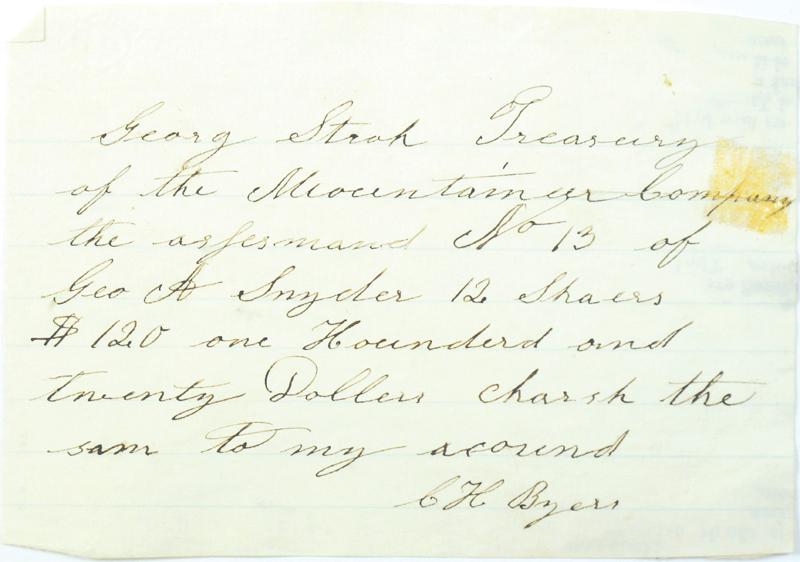 Georg Stroh Treasury
of the Miocentainyer Company
the assesmand No 13 of
Geo A Snyder 12 Shaers
$120 one Hounderd and
twenty Dollers charsh the
sam to my acound
C H Byers